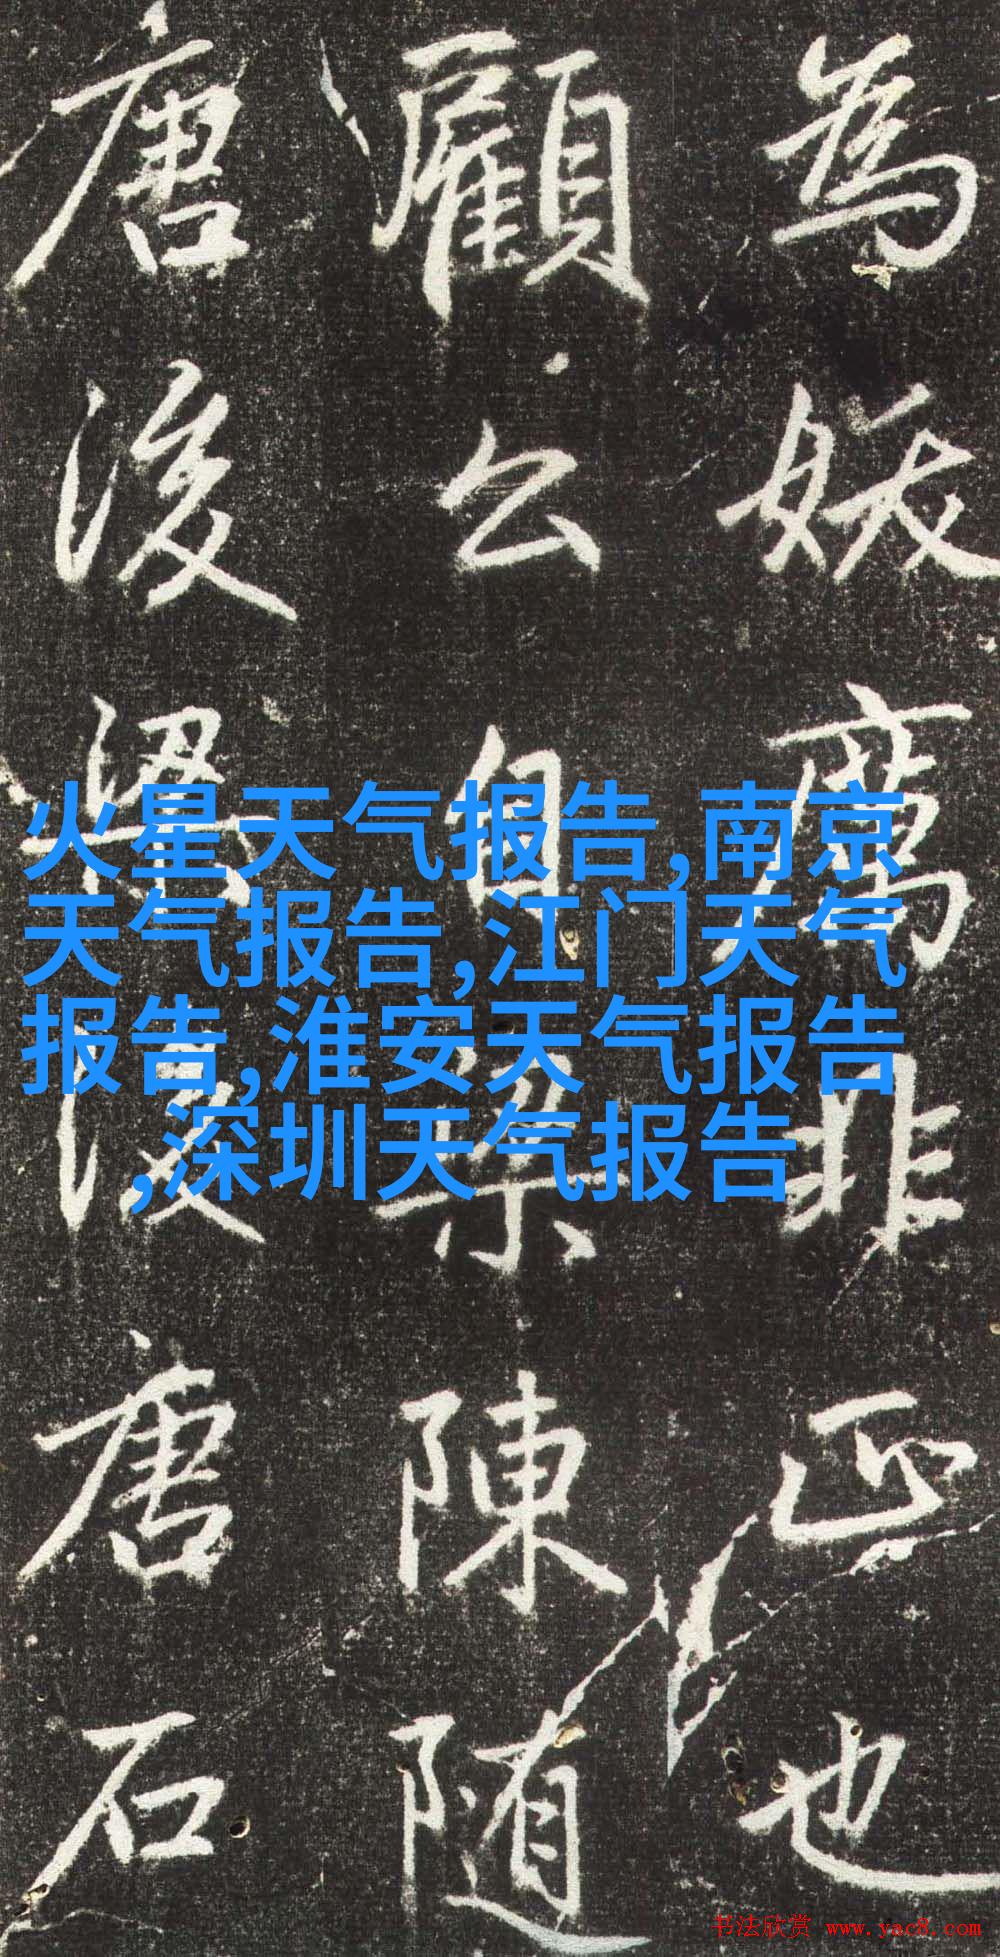 為妖厲非正也
顧公自梁陳隨
唐後梁後唐石
火星天气报告,南京
天气报告,江门天气
报告,淮安天气报告
,深圳天气报告
书法欣赏 www.yac8.com